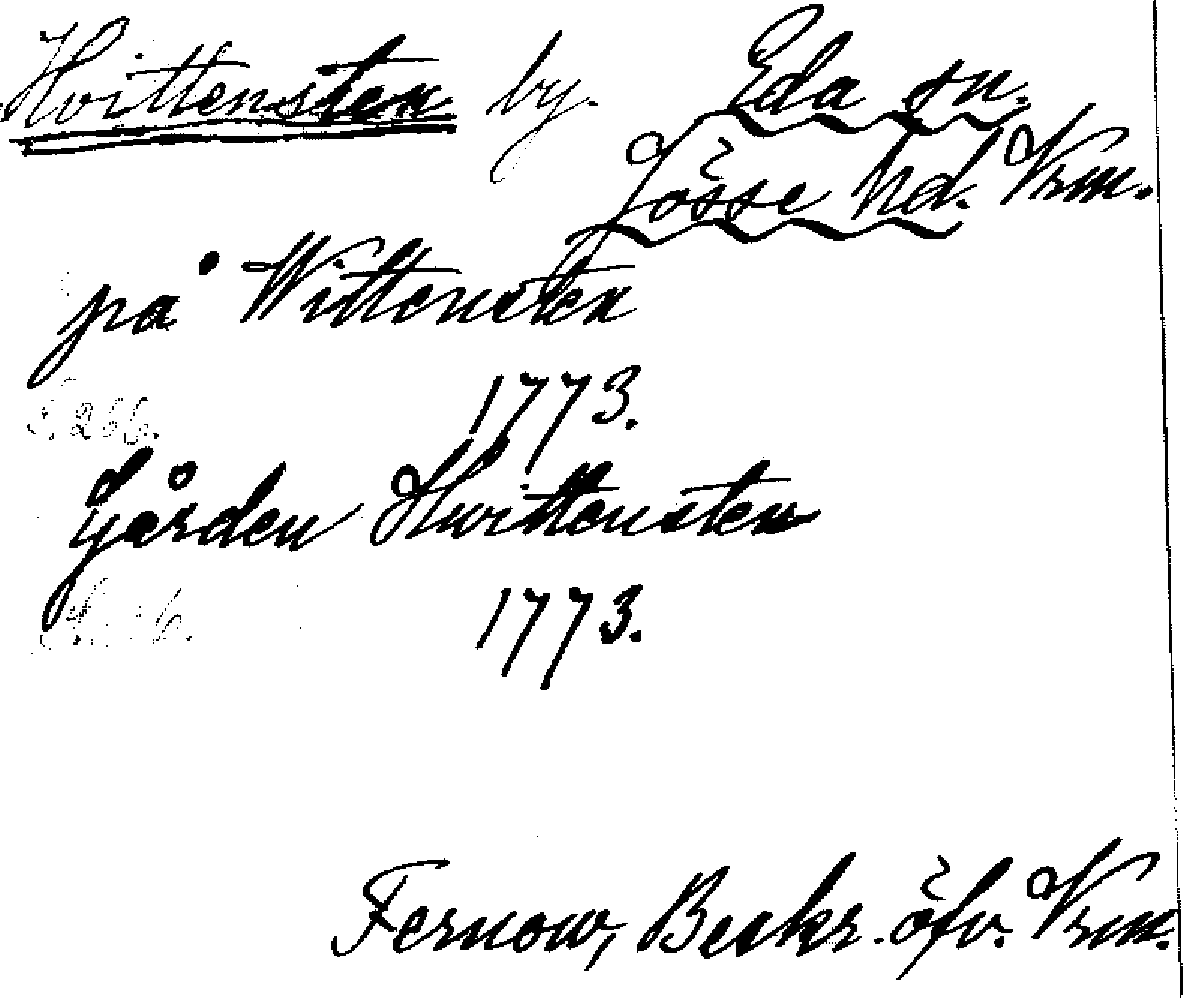 Hvittensten by. Eda sn.
Jösse hd. Vrm.
på Wittensten
1773.
S. 266.
Gården Hwittensten
1773.
Fernow, Beskr. öfv. Vrm.